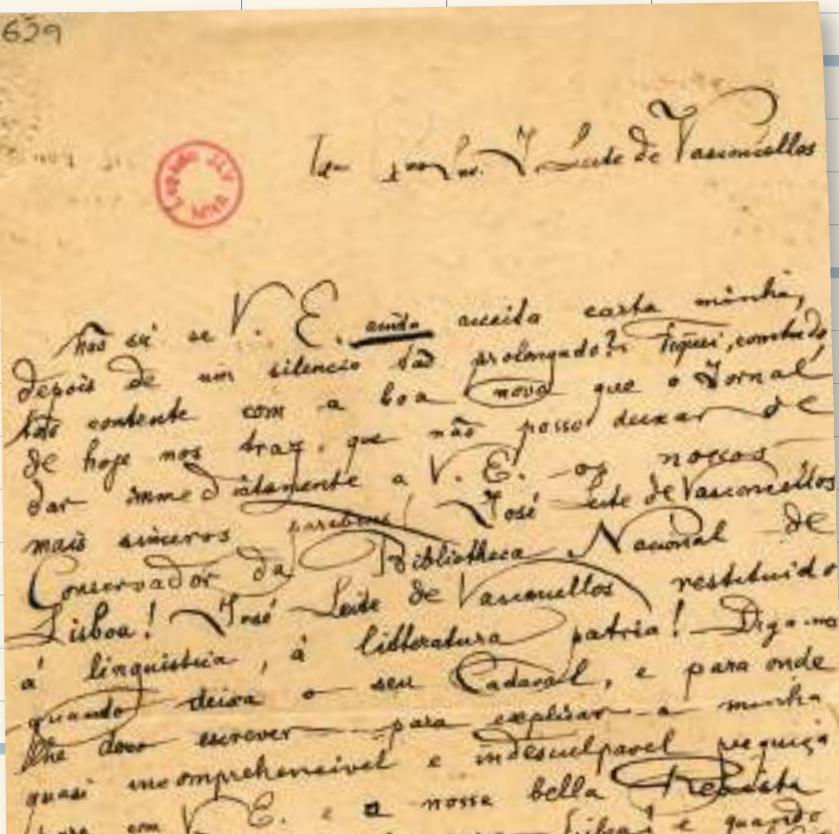 629
J. Leite de Vasconcellos
Legado JLV
MNA
Não sei se V. E. ainda acceita carta minha,
depois de um silencio tão prolongado? Fiquei, comtudo
tão contente com a boa nova que o Jornal
de hoje nos traz, que não posso deixar de
dar immediatamente a V. E. os nossos
mais sinceros parabens! José Leite de Vasconcellos
Conservador da Bibliotheca Nacional de
Lisboa! José Leite de Vasconcellos restituido
á linguistica, á litteratura patria! Diga-me
quando deixa o seu Cadaval, e para onde
lhe devo escrever para explicar a minha
quasi incomprehensivel e indesculpavel preguiça
com V. E. e a nossa bella Revista
Lisboa! e quando